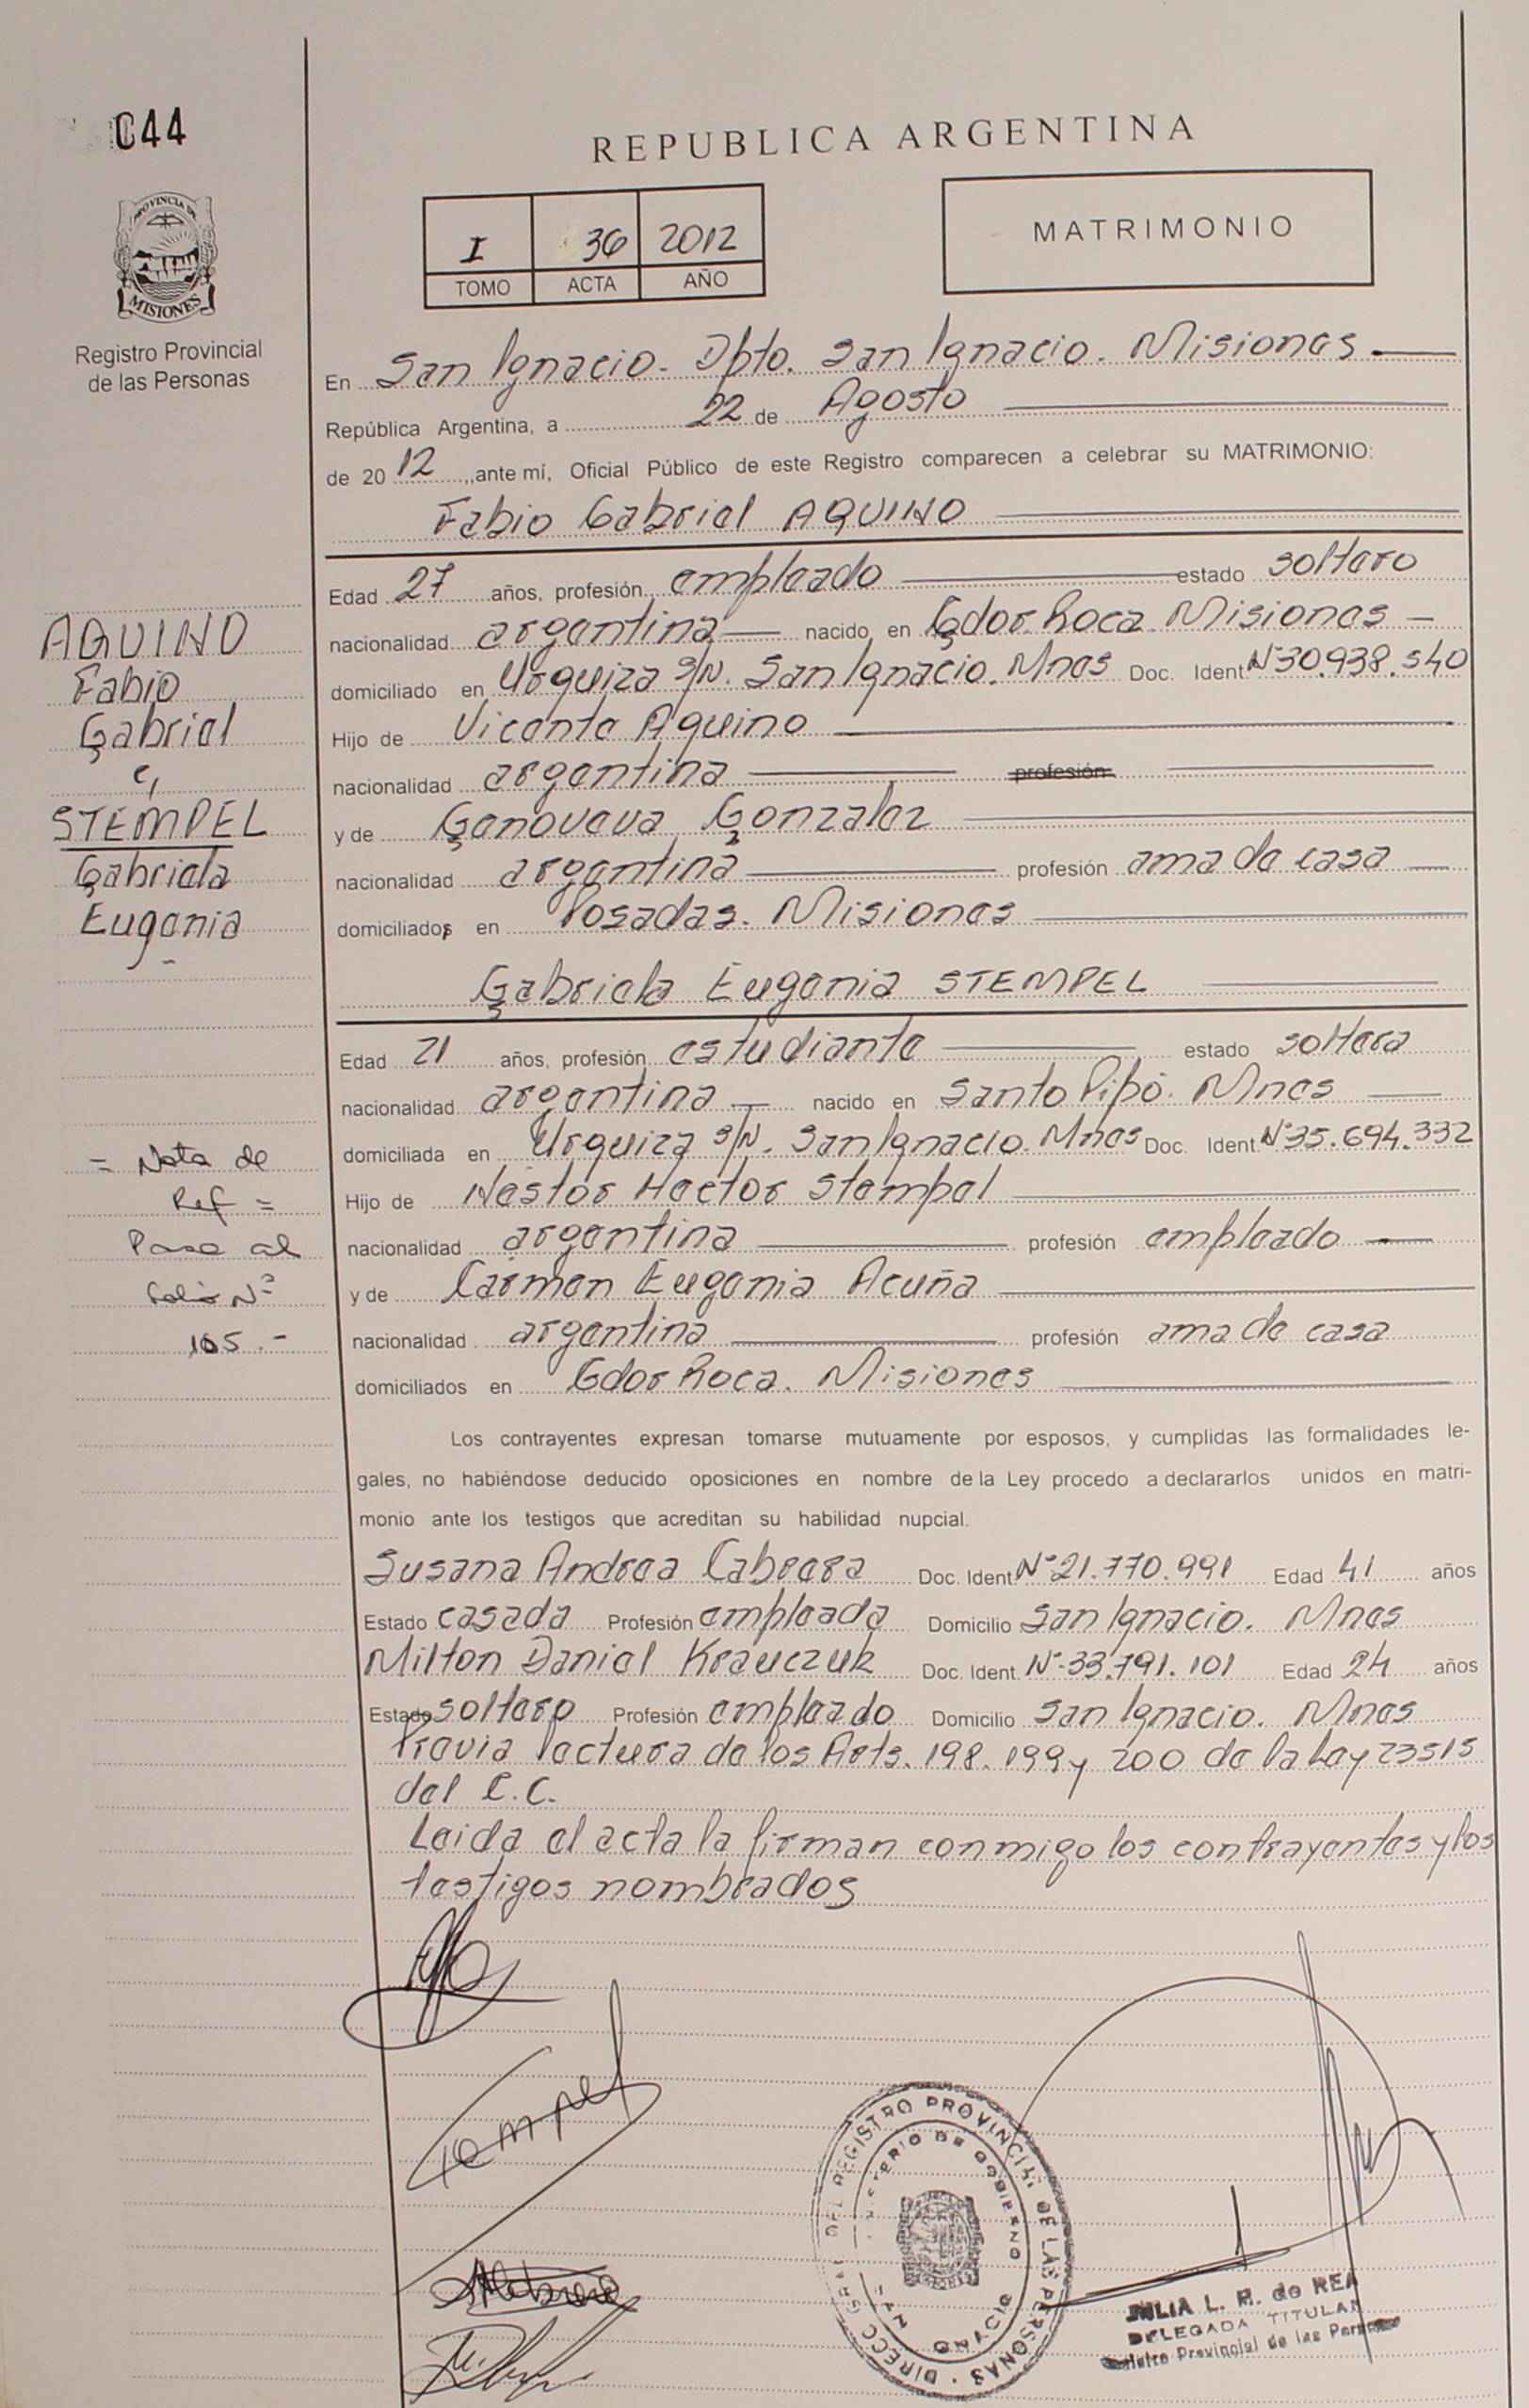 044
REPUBLICA ARGENTINA
PROVINCIA DE
MISIONES
Registro Provincial
de las Personas
I 36 2012
TOMO ACTA AÑO
MATRIMONIO
En San Ignacio. Dpto. San Ignacio. Misiones
República Argentina, a 22 de Agosto
de 20 12, ante mí, Oficial Público de este Registro comparecen a celebrar su MATRIMONIO:
Fabio Gabriel AQUINO
Edad 27 años, profesión empleado estado soltero
nacionalidad argentina nacido en Gdor Roca Misiones
domiciliado en Urquiza S/N. San Ignacio. Mnes Doc. Ident Nº 30.938.540
Hijo de Vicente Aquino
nacionalidad argentina profesión
y de Genoveva Gonzalez
nacionalidad argentina profesión ama de casa
domiciliados en Posadas. Misiones
AQUINO
Fabio
Gabriel
c/
STEMPEL
Gabriela
Eugenia
Gabriela Eugenia STEMPEL
Edad 21 años, profesión estudiante estado soltera
nacionalidad argentina nacido en Santo Pipó. Mnes
domiciliada en Urquiza S/N. San Ignacio. Mnes Doc. Ident. Nº 35.694.332
Hijo de Nestor Hector Stempel
nacionalidad argentina profesión empleado
y de Carmen Eugenia Acuña
nacionalidad argentina profesión ama de casa
domiciliados en Gdor Roca. Misiones
= Nota de
Ref =
Pase al
Folio Nº
105.-
Los contrayentes expresan tomarse mutuamente por esposos, y cumplidas las formalidades le-
gales, no habiéndose deducido oposiciones en nombre de la Ley procedo a declararlos unidos en matri-
monio ante los testigos que acreditan su habilidad nupcial.
Susana Andrea Cabrera Doc. Ident. Nº 21.770.991 Edad 41 años
Estado casada Profesión empleada Domicilio San Ignacio. Mnes
Milton Daniel Krauczuk Doc. Ident. Nº 33.791.101 Edad 24 años
Estado soltero Profesión empleado Domicilio San Ignacio. Mnes
Previa lectura de los Arts. 198. 199 y 200 de la Ley 23515
del C.C.
Leida el acta la firman conmigo los contrayentes y los
testigos nombrados
DIRECC GRAL DEL REGISTRO PROVINCIAL DE LAS PERSONAS
MINISTERIO DE GOBIERNO
SAN IGNACIO
JULIA L. R. de REA
DELEGADA TITULAR
Registro Provincial de las Personas